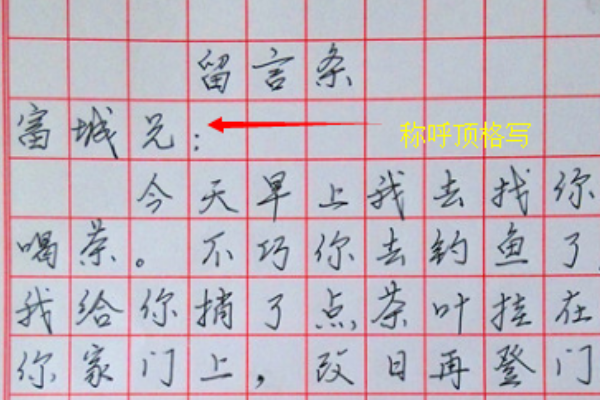 留言条
富城兄：
称呼顶格写
今天早上我去找你
喝茶。不巧你去钓鱼了,
我给你捎了点茶叶挂在
你家门上，改日再登门